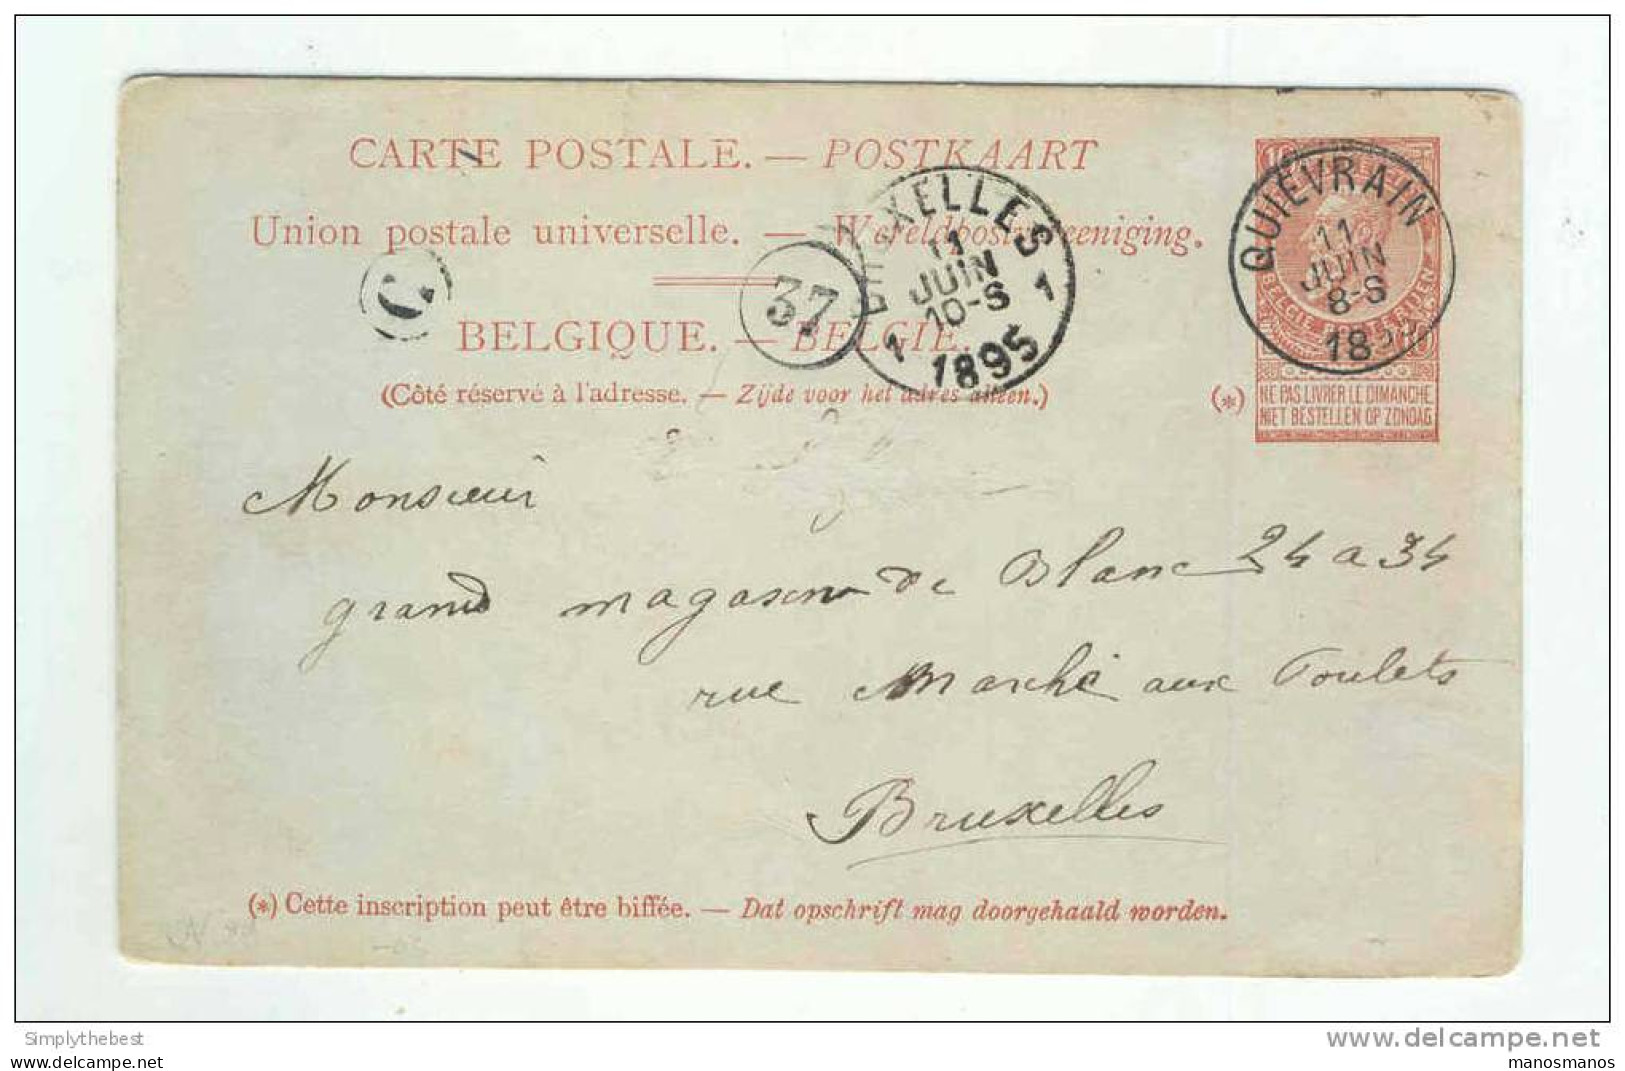 CARTE POSTALE. — POSTKAART
Union postale universelle. — Wereldpostvereeniging.
BELGIQUE. — BELGIE.
(Côté réservé à l'adresse. — Zijde voor het adres alleen.)
C
37
BRUXELLES
11
JUIN
10-S
1 1
1895
QUIÉVRAIN
11
JUIN
8-S
18
10
BELGIE
(*)
NE PAS LIVRER LE DIMANCHE
NIET BESTELLEN OP ZONDAG
Monsieur
grand magasin de Blanc 24 a 34
rue Marché aux Poulets
Bruxelles
(*) Cette inscription peut être biffée. — Dat opschrift mag doorgehaald worden.
Simplythebest
delcampe.net
manosmanos